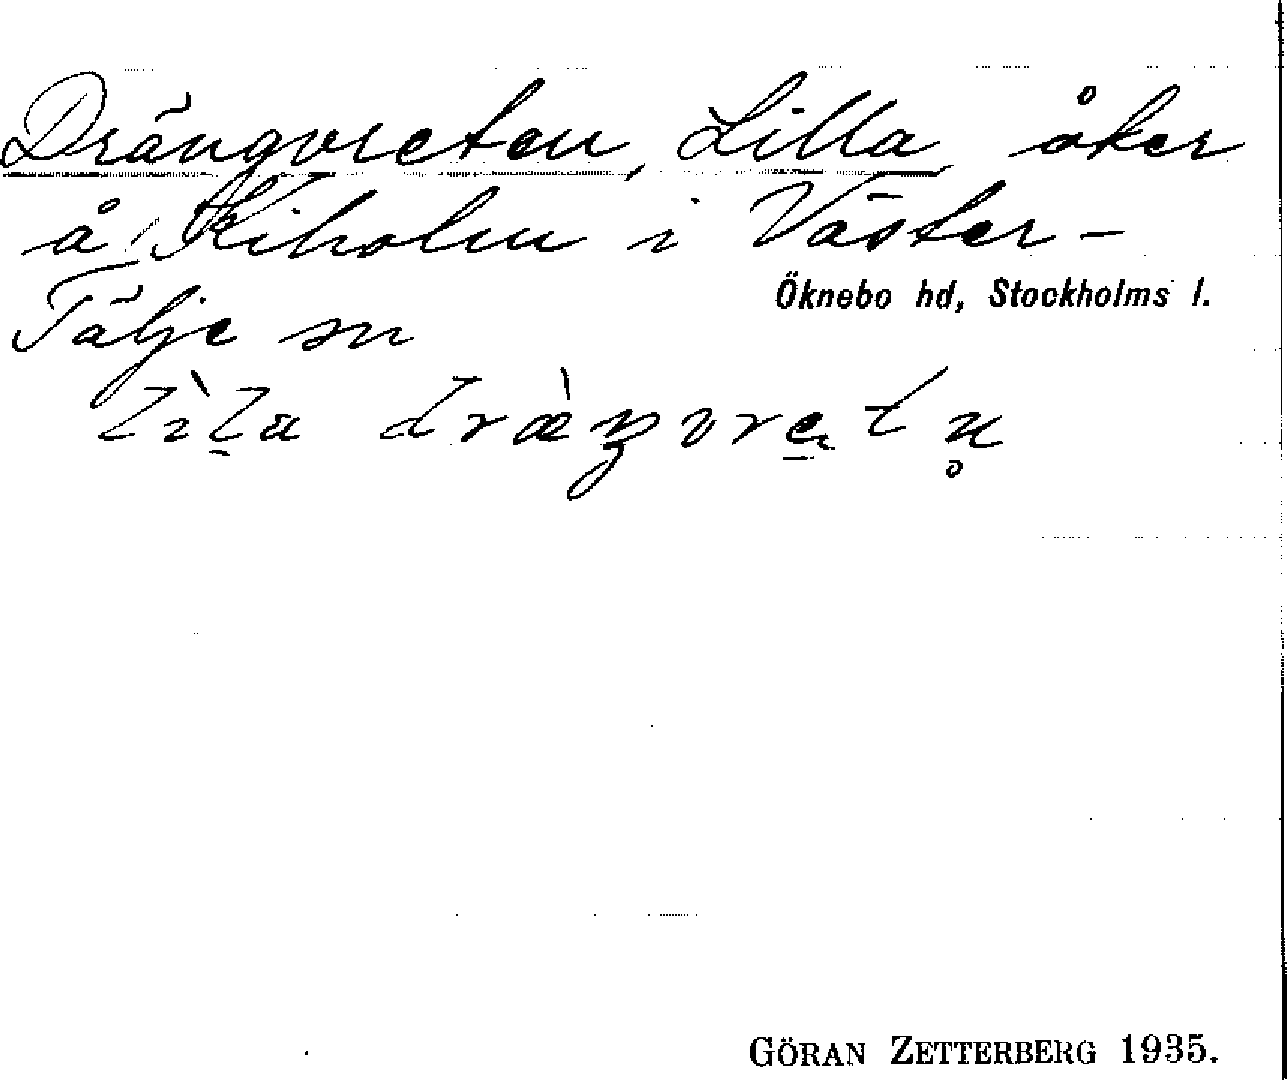 Drängvreten, Lilla, åker
å Kiholm i Väster-
Tälje sn
Öknebo hd, Stockholms l.
lìla dræ̀ŋvretn̥
GÖRAN ZETTERBERG 1935.